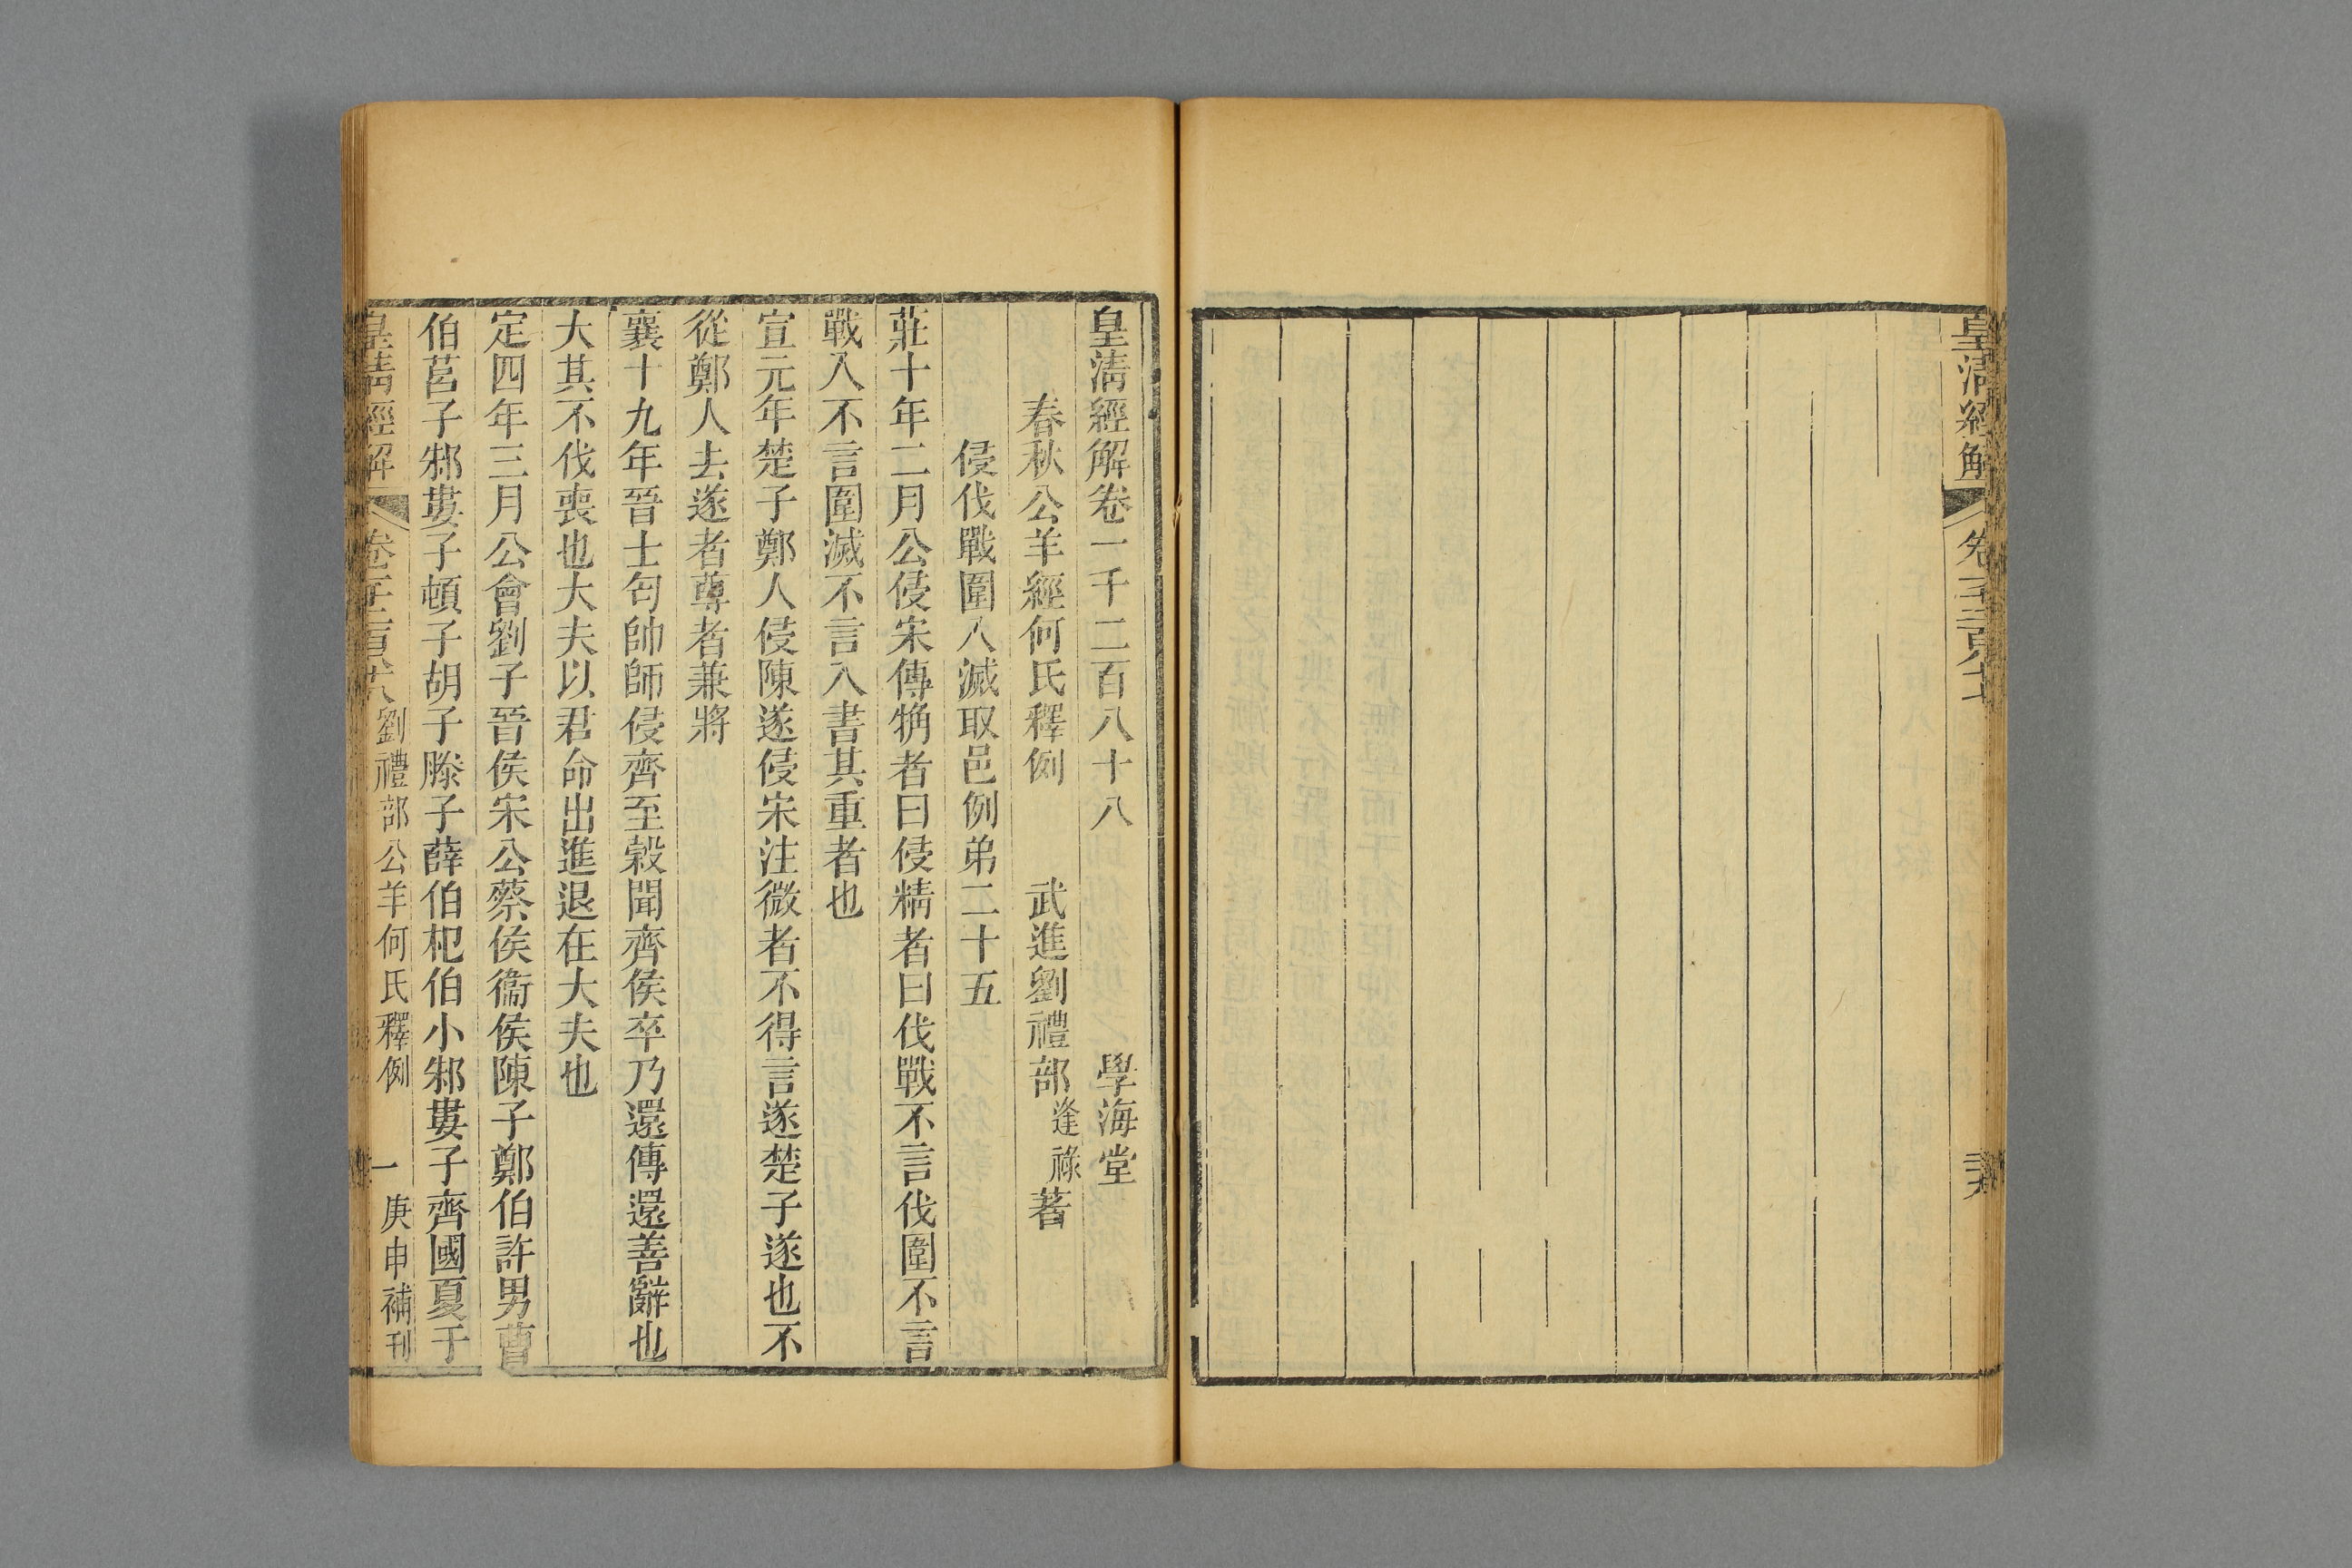 皇清經解
皇清經解卷一千二百八十八 學海堂
春秋公羊經何氏釋例 武進劉禮部逢祿著
侵伐戰圍入滅取邑例弟二十五
莊十年二月公侵宋傳觕者曰侵精者曰伐戰不言伐圍不言
戰入不言圍滅不言入書其重者也
宣元年楚子鄭人侵陳遂侵宋注微者不得言遂楚子遂也不
從鄭人去遂者尊者兼將
襄十九年晉士匄帥師侵齊至穀聞齊侯卒乃還傳還善辭也
大其不伐喪也大夫以君命出進退在大夫也
定四年三月公會劉子晉侯宋公蔡侯衞侯陳子鄭伯許男曹
伯莒子邾婁子頓子胡子滕子薛伯杞伯小邾婁子齊國夏于
皇清經解 卷千二百八十八 劉禮部公羊何氏釋例 一 庚申補刊